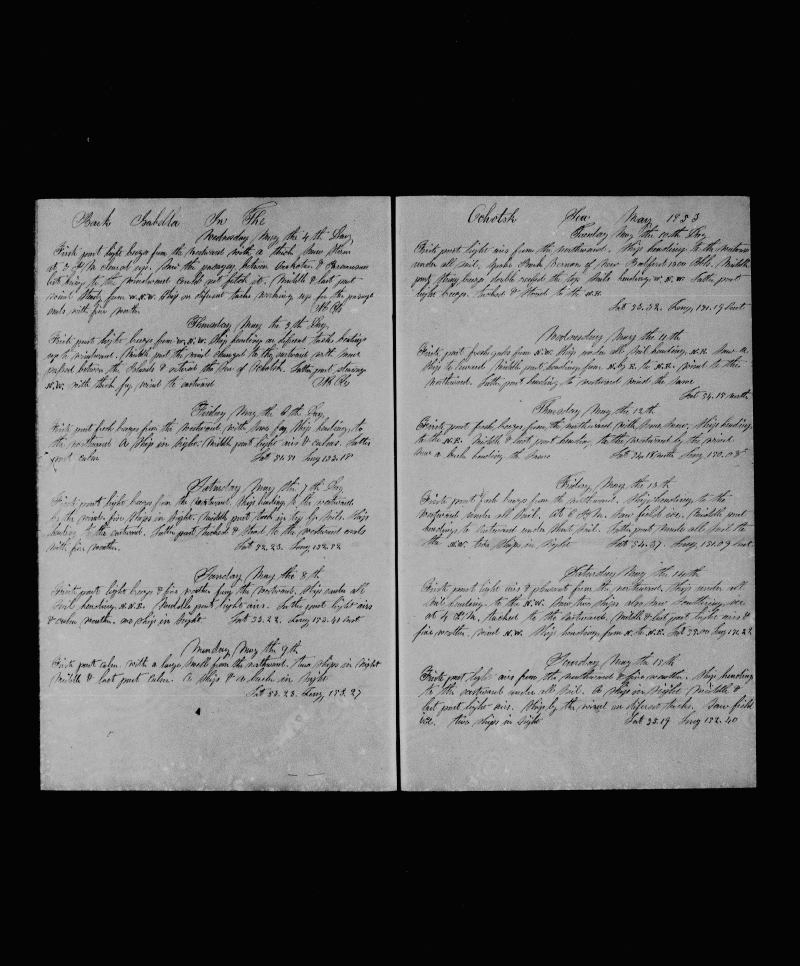 Bark Isabella In The
Wednesday May the 4th Day
First part light breeze from the Westward with a thick snow storm
at 3 P.M. cleared up. Saw the passage between &
but being to the windward could not fetch it. Middle & last part
wind steady from W.N.W. Ship on different tacks working up for the passage
ends with fine weather
Thursday May the 5th Day
First part light breeze from W.N.W. Ship heading on different tacks beating
up to windward. Middle part the wind changed to the eastward with snow
passed between the Islands & entered the Sea of Ochotsk. Latter part steering
N.W. with thick fog wind to eastward
Friday May the 6th Day
First part fresh breeze from the Westward, with some fog Ship heading to
the northward A Ship in Sight. Middle part light airs & calms. Latter
part calm Long 152.18
Saturday May the 7th Day
First part light breeze from the westward. Ship heading to the northward
by the wind. five Ships in Sight. Middle part took in Sail. Ship
heading to the eastward. Latter part tacked & Stood to the northward ends
with fine weather. Lat 52.23. Long 152.32
Sunday May the 8th
First part light breeze & fine weather from the Westward. Ship under all
Sail heading N.N.E. Middle part light airs. Latter part light airs
& calm weather no Ship in Sight Lat 53.22. Long 152.41 East
Munday May the 9th
First part calm with a large Swell from the eastward. two Ships in Sight
Middle & last part calm. A Ship & a bark in Sight
Lat 53.23. Long 153.27
Ochotsk Sea May 1853
Tuesday May the 10th Day
First part light airs from the northward. Ship heading to the Westward
under all Sail. Spoke Bark of New Bedford 1200 Bbls. Middle
part Strong breeze double reefed the top Sails heading W.N.W. Latter part
light breeze. Tacked & Stood to the N.E.
Lat 53.32. Long 151.19 East
Wednesday May the 11th
First part fresh gale from N.W. Ship under all Sail heading N.E. Saw a
Ship to leeward Middle part heading from N. by E. to N.E. wind to the
northward. Latter part heading to westward wind the same
Lat 54.15 north
Thursday May the 12th
First part fresh breeze from the northward with some snow, Ship heading
to the N.E. Middle & last part heading to the westward by the wind
saw a bark heading the same Lat 54.18 north Long 150.08
Friday May the 13th
First part fresh breeze from the northward. Ship heading to the
westward under all Sail. At 6 P.M. Saw field ice. Middle part
heading to Eastward under Short Sail. Latter part made all Sail to
the N.W. two Ships in Sight Lat 54.37. Long. 151.09 East
Saturday May the 14th
First part light airs & pleasant from the northward. Ship under all
Sail heading to the N.W. Saw two Ships also saw Scattering ice
at 4 P.M. tacked to the Eastward. Middle & last part light airs &
fine weather. wind N.W. Ship heading from N. to N.E. Lat 55.00 Long 151.22
Sunday May the 15th
First part light airs from the northward & fine weather. Ship heading
to the eastward under all Sail. A Ship in Sight. Middle &
last part light airs. Ship by the wind on different tacks. Saw field
ice. two Ships in Sight Lat 55.19 Long 152.40